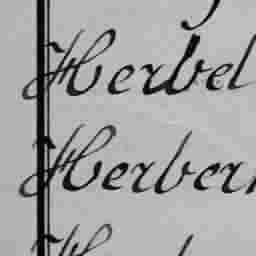 Herbel
Herber